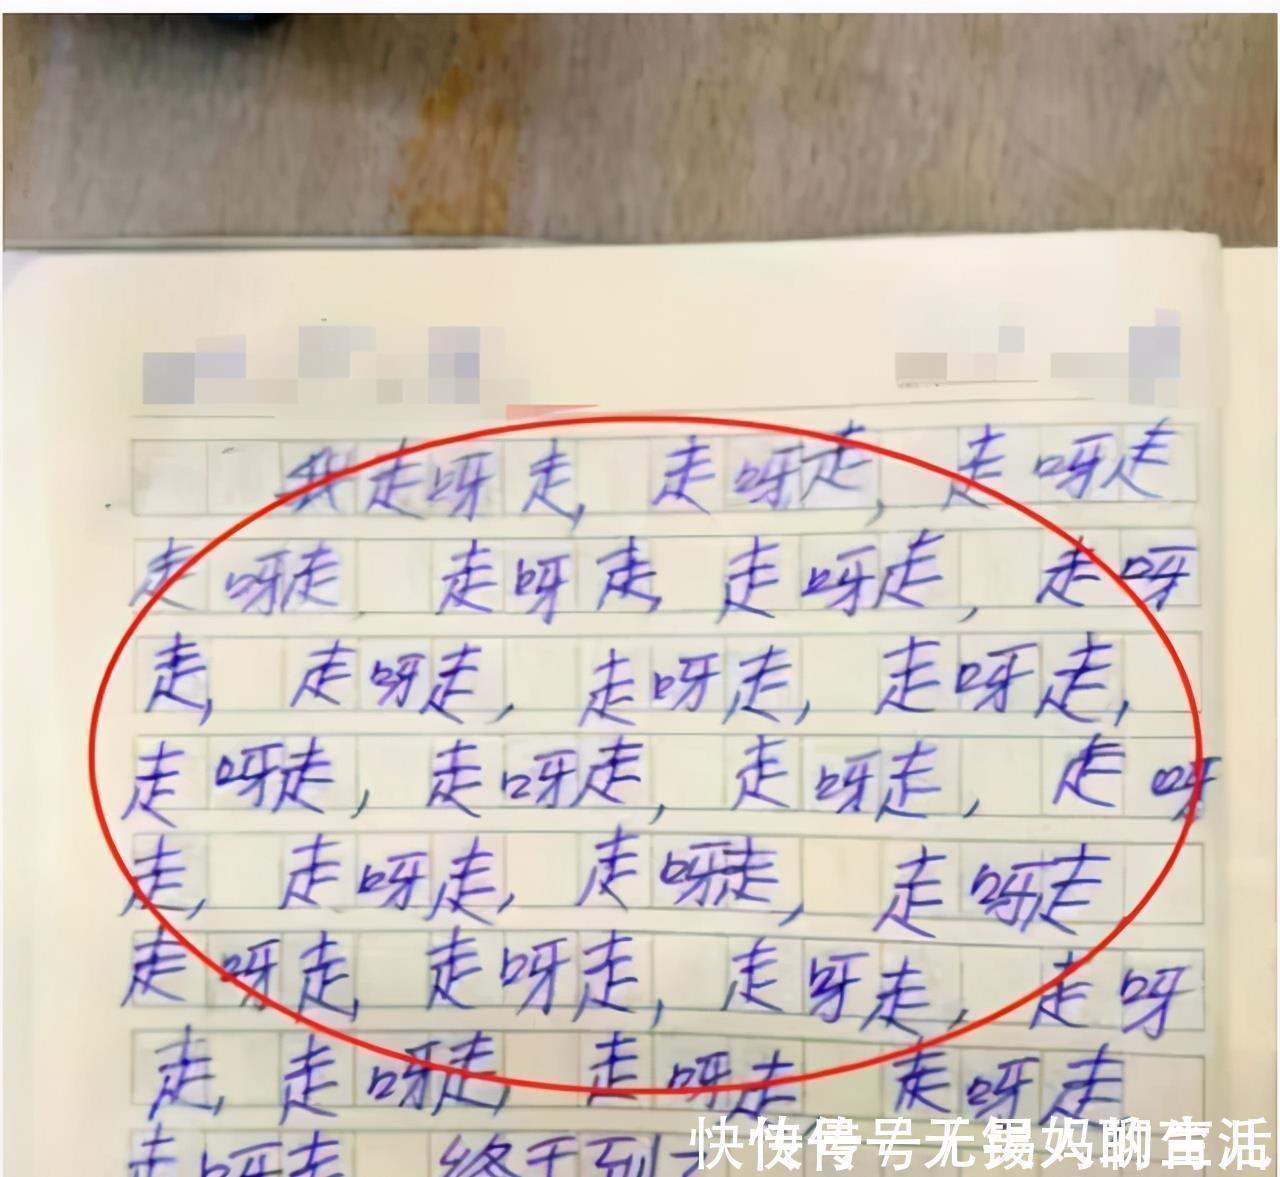 我走呀走，走呀走，走呀走
走呀走 走呀走，走呀走，走呀
走，走呀走，走呀走，走呀走，
走呀走，走呀走，走呀走，走呀
走，走呀走，走呀走，走呀走
走呀走，走呀走，走呀走，走呀
走，走呀走，走呀走，走呀走
走呀走 终于到